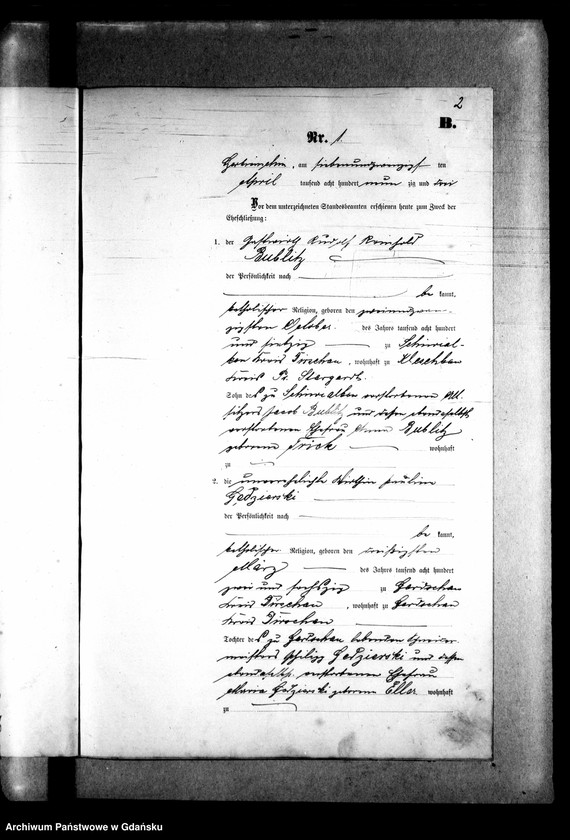 2
B.
Nr. 1.
am siebenundzwanzigsten
April tausend acht hundert neun zig und drei
Vor dem unterzeichneten Standesbeamten erschienen heute zum Zweck der
Eheschließung:
1. der Gastwirth Rudolf Reinhold
Bublitz
der Persönlichkeit nach
be kannt,
katholischer Religion, geboren den zweiundzwan-
zigsten October des Jahres tausend acht hundert
und siebzig zu
ken Kreis Dirschau, wohnhaft zu
Kreis Pr. Stargardt.
Sohn des zu verstorbenen
sitzers Jacob Bublitz und dessen ebendaselbst
verstorbenen Ehefrau Bublitz
geborene Frick wohnhaft
zu
2. die unverehelichte Pauline
Gedzierski
der Persönlichkeit nach
be kannt,
katholischer Religion, geboren den dreißigsten
März des Jahres tausend acht hundert
zwei und sechszig zu Gardschau
Kreis Dirschau, wohnhaft zu Gardschau
Kreis Dirschau
Tochter des zu Gardschau lebenden
meisters Philipp Gedzierski und dessen
ebendaselbst verstorbenen Ehefrau
Maria Gedzierski geborene Eller wohnhaft
zu
Archiwum Państwowe w Gdańsku